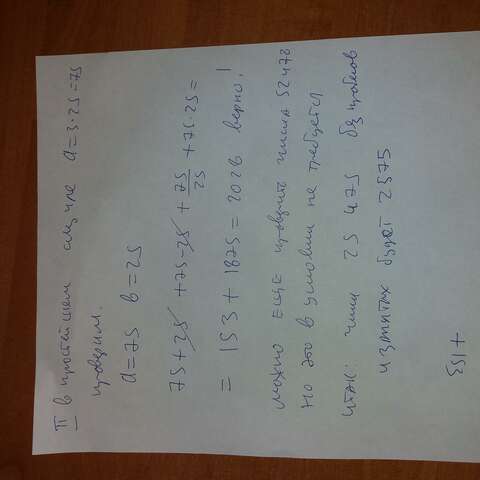 II в простейшем случае a=3·25=75
проверим.
a=75 в=25
75+25+75-25+75/25+75·25=
=153+1875=2026 верно!
можно еще проверить числа 52 и 78
но это в условии не требуется
итак: числа 25 и 75 без пробелов
и запятых будет 2575
+153